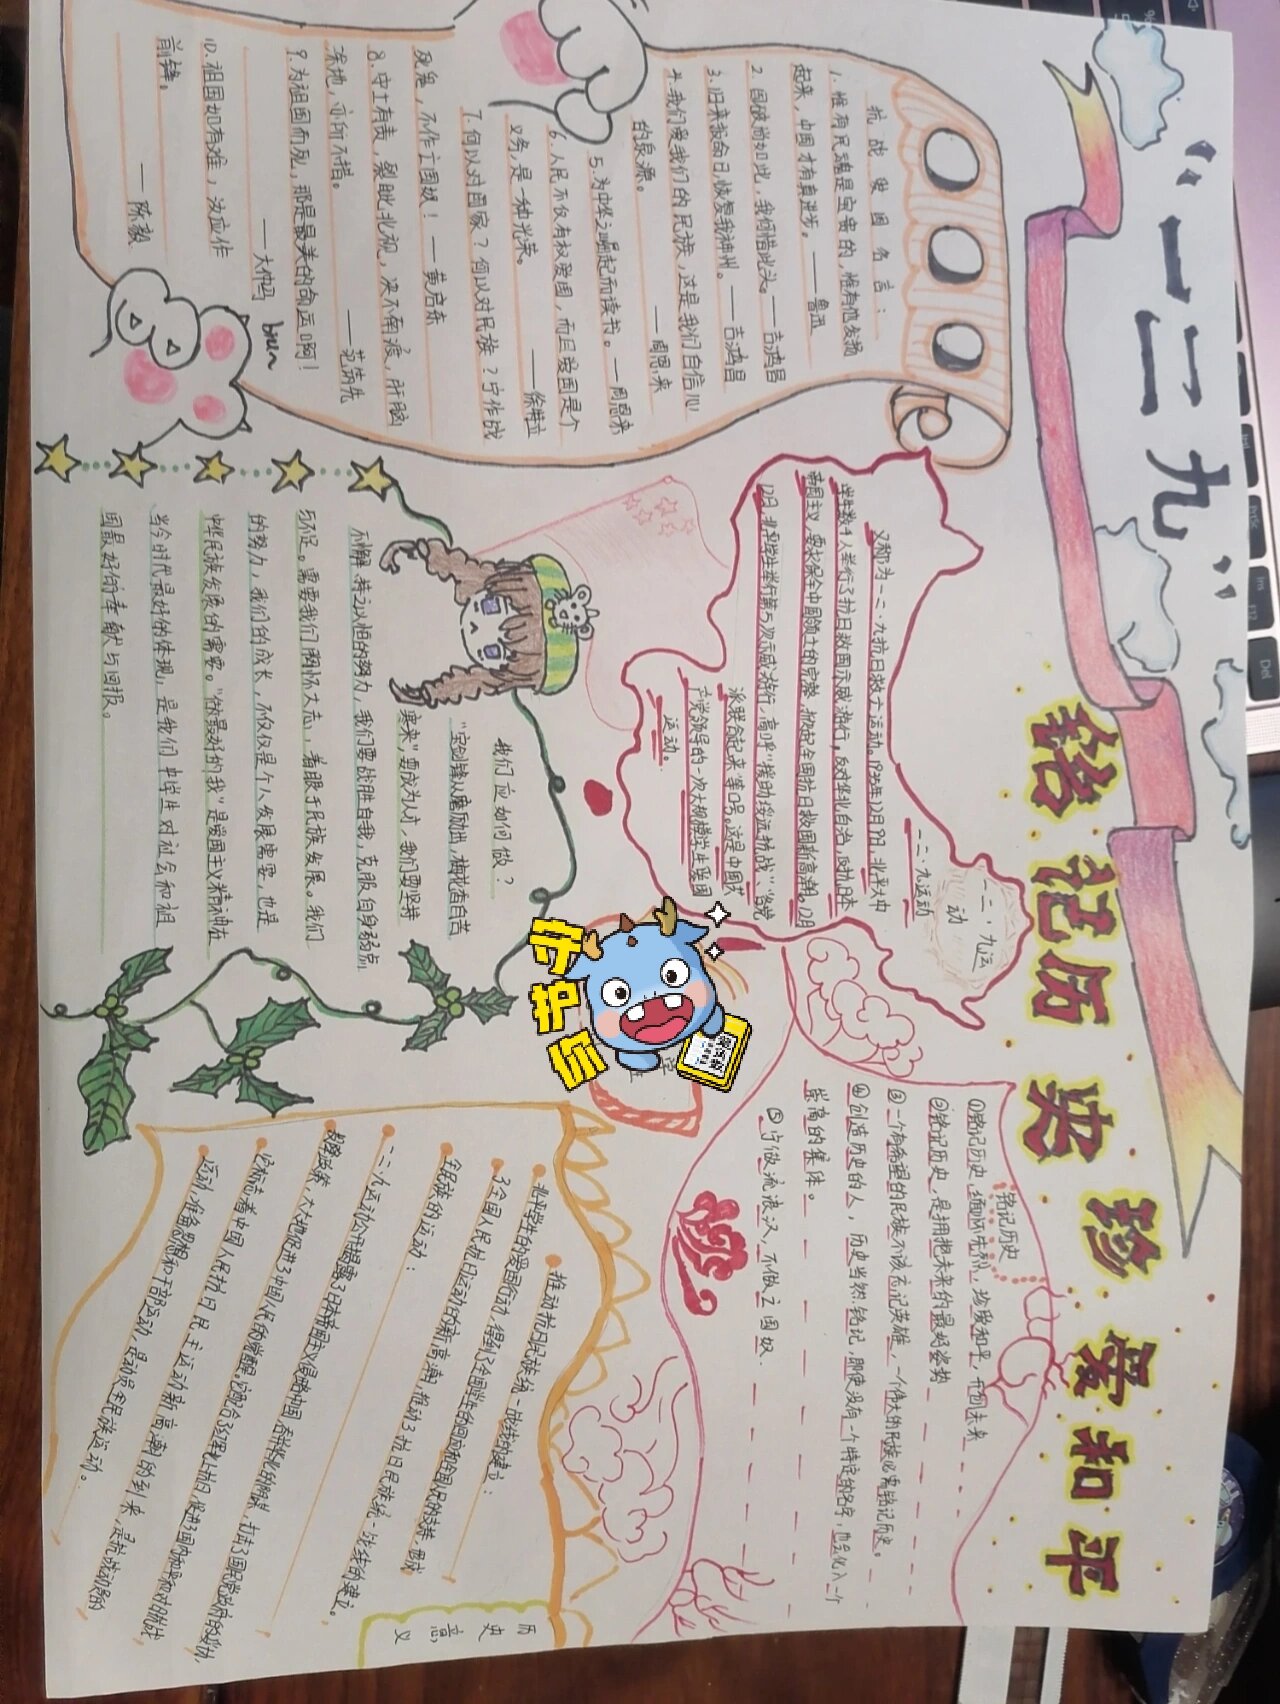 “一二·九”
铭记历史 珍爱和平
抗战爱国名言：
1.惟有民魂是宝贵的，惟有他发扬
起来，中国才有真进步。——鲁迅
2.国破尚如此，我何惜此头。——吉鸿昌
3.归来报命日，恢复我神州。——吉鸿昌
4.我们爱我们的民族，这是我们自信心
的泉源。——周恩来
5.为中华之崛起而读书。——周恩来
6.人民不仅有权爱国，而且爱国是个
义务，是一种光荣。——徐特立
7.何以对国家？何以对民族？宁作战
死鬼，不作亡国奴！——黄启东
8.守土有责，裂眦北视，决不甯渡，肝脑
涂地，亦所不惜。——范筑先
9.为祖国而死，那是最美的命运啊！
——大仲马
10.祖国如有难，汝应作
前锋。——陈毅
biu~
一二·九运动
一二·九运动
又称为一二·九抗日救亡运动。1935年12月9日，北平大中
学生数千人举行了抗日救国示威游行，反对华北自治，反抗日本
帝国主义，要求保全中国领土的完整，掀起全国抗日救国新高潮。12月
12日，北平学生举行第5次示威游行，高呼“援助绥远抗战”、“各党
派联合起来”等口号。这是中国共
产党领导的一次大规模学生爱国
运动。
铭记历史
①铭记历史，缅怀先烈，珍爱和平，开创未来
②铭记历史，是拥抱未来的最好姿势
③一个有希望的民族不该忘记英雄，一个伟大的民族必需铭记历史。
④创造历史的人，历史当然铭记，即使没有一个特定的名字，也会化入一个
崇高的集体。
⑤宁做流浪汉，不做亡国奴.
我们应如何做？
“宝剑锋从磨砺出，梅花香自苦
寒来”要成为人才，我们要坚持
不懈 持之以恒的努力，我们要战胜自我，克服自身弱点
与不足。需要我们胸怀大志，着眼于民族发展。我们
的努力，我们的成长，不仅仅是个人发展需要，也是
中华民族发展的需要。“做最好的我”是爱国主义精神在
当今时代最好的体现，是我们中学生对社会和祖
国最好的奉献与回报。
守护你
学
班
历史意义
推动抗日民族统一战线的建立：
北平学生的爱国行动，得到了全国学生的回应和全国人民的支持，形成
了全国人民抗日运动的新高潮，推动了抗日民族统一战线的建立。
全民族的运动：
一二·九运动公开揭露了日本帝国主义侵略中国，吞并华北的阴谋，打击了国民党政府的妥协
投降政策，大大地促进了中国人民的觉醒。它配合了红军北上抗日，促进了国内和平和对日抗战
它标志着中国人民抗日民主运动新高潮的到来，是抗战动员的
运动，准备思想和干部的运动，是动员全民族运动。